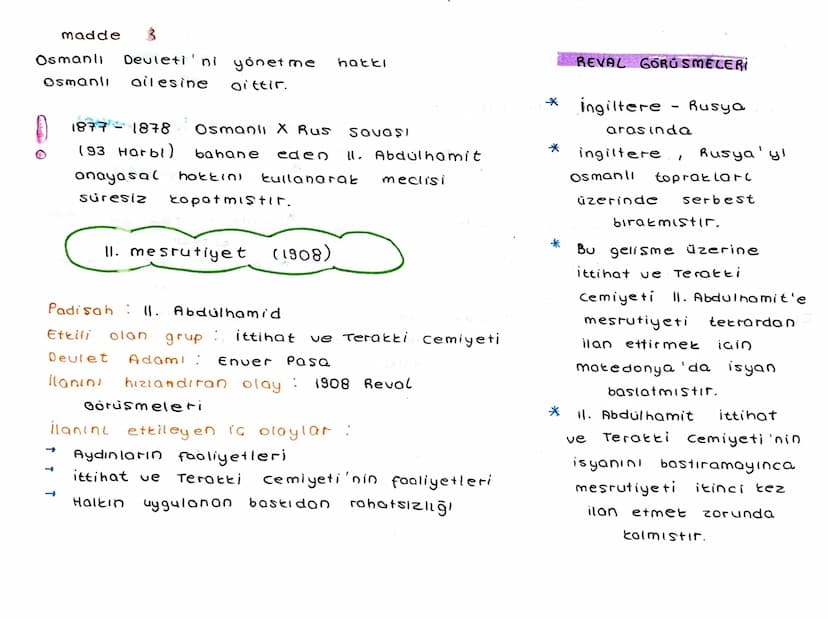 madde 3
Osmanlı Devleti'ni yönetme hakkı
Osmanlı ailesine aittir.
1877 - 1878 Osmanlı X Rus savaşı
(93 Harbi) bahane eden II. Abdülhamit
anayasal hakkını kullanarak meclisi
süresiz kapatmıştır.
II. meşrutiyet (1908)
Padişah : II. Abdülhamid
Etkili olan grup : ittihat ve Terakki cemiyeti
Devlet Adamı : Enver Paşa
İlanını hızlandıran olay : 1908 Reval
Görüşmeleri
İlanını etkileyen iç olaylar :
→ Aydınların faaliyetleri
→ ittihat ve Terakki cemiyeti'nin faaliyetleri
→ Halkın uygulanan baskıdan rahatsızlığı
REVAL GÖRÜŞMELERİ
* İngiltere - Rusya
arasında
* ingiltere , Rusya'yı
osmanlı toprakları
üzerinde serbest
bırakmıştır.
* Bu gelişme üzerine
ittihat ve Terakki
cemiyeti II. Abdulhamit'e
meşrutiyeti tekrardan
ilan ettirmek için
makedonya'da isyan
başlatmıştır.
* II. Abdülhamit ittihat
ve Terakki cemiyeti'nin
isyanını bastıramayınca
meşrutiyeti ikinci kez
ilan etmek zorunda
kalmıştır.